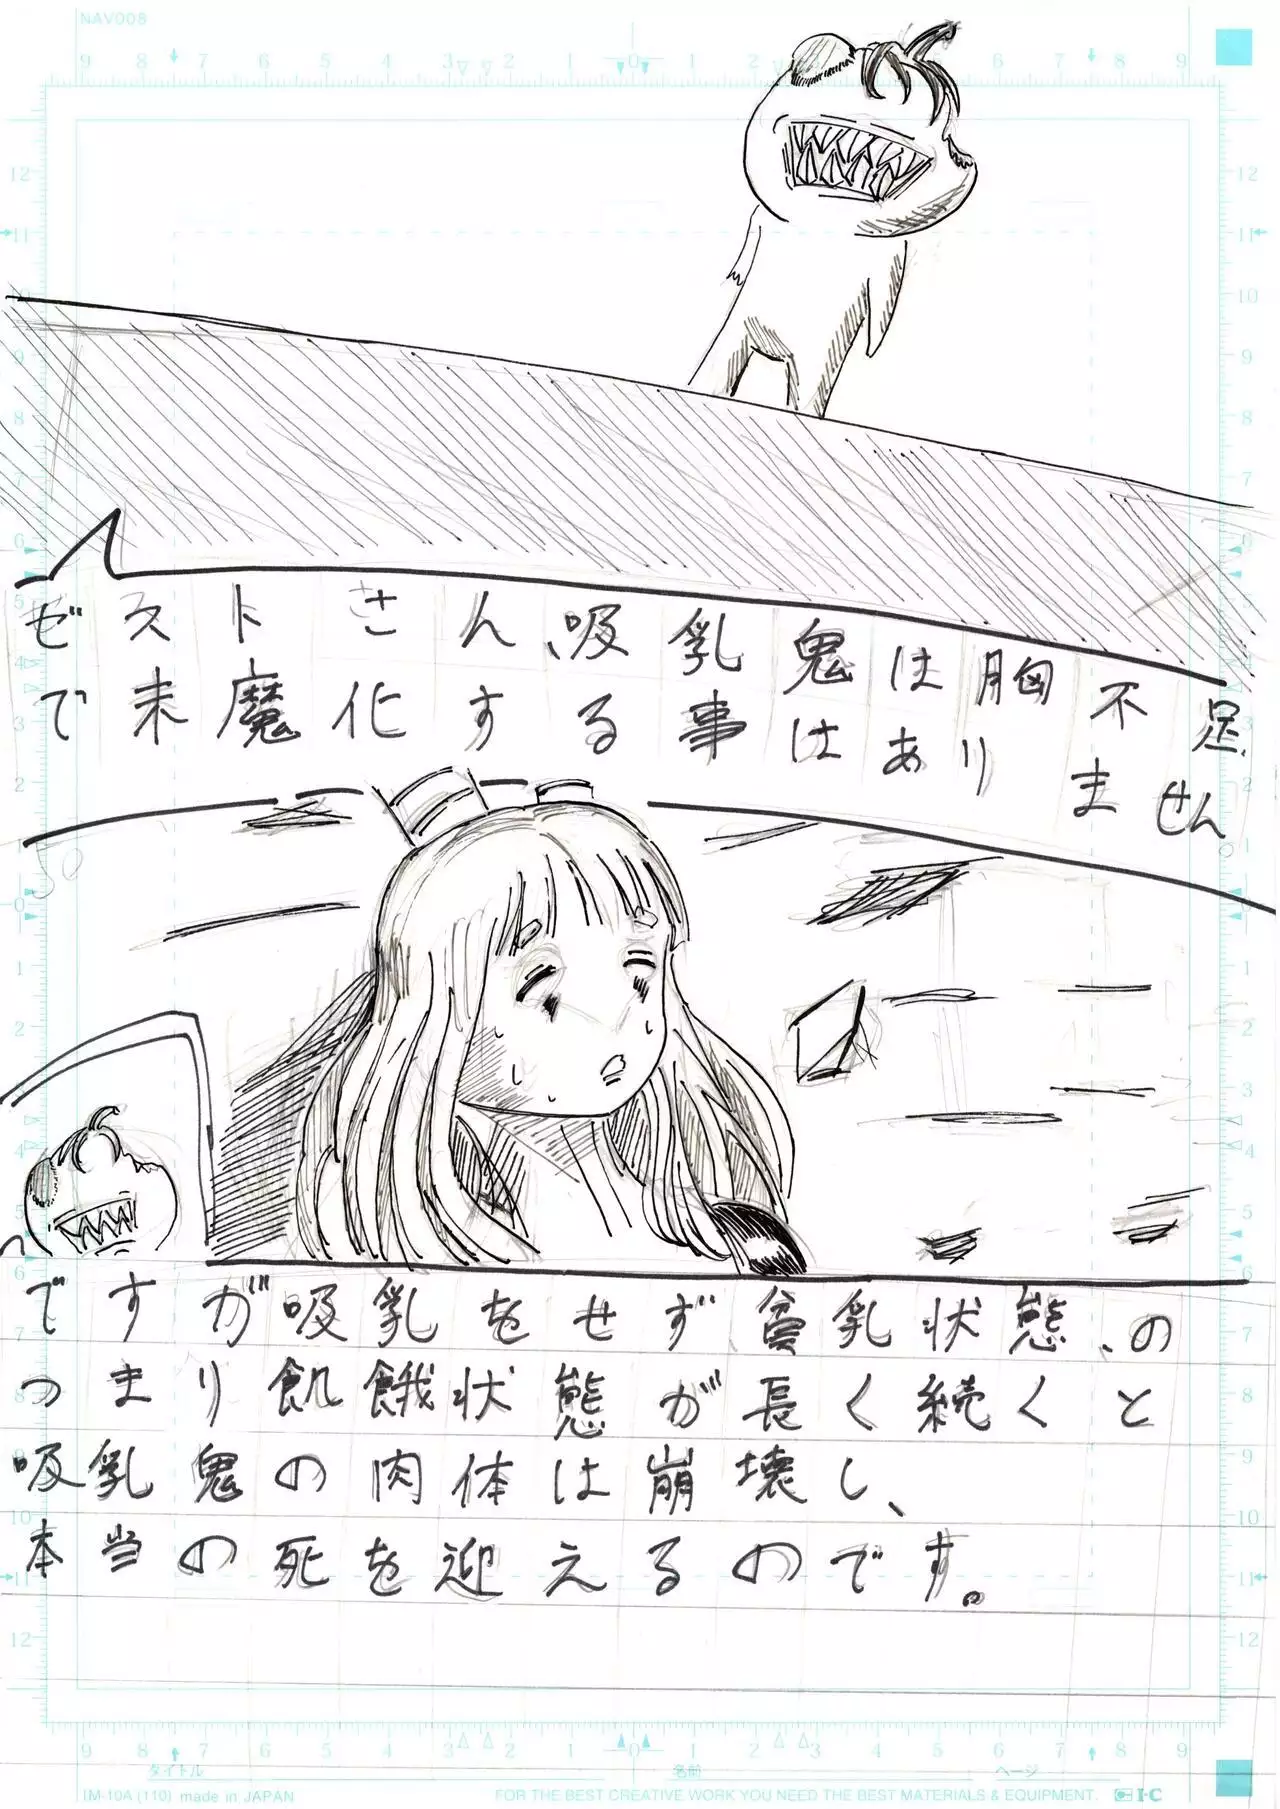 NAV008
9 8 7 6 5 4 3 2 1 0 1 2 3 4 5 6 7 8 9
ゼストさん、吸乳鬼は胸不足
で未魔化する事はありません。
50
ですが吸乳をせず貧乳状態、の
つまり飢餓状態が長く続くと
吸乳鬼の肉体は崩壊し、
本当の死を迎えるのです。
9 8 7 6 5 4 3 2 1 0 1 2 3 4 5 6 7 8 9
タイトル 名前 ページ
IM-10A (110) made in JAPAN FOR THE BEST CREATIVE WORK YOU NEED THE BEST MATERIALS & EQUIPMENT. I·C